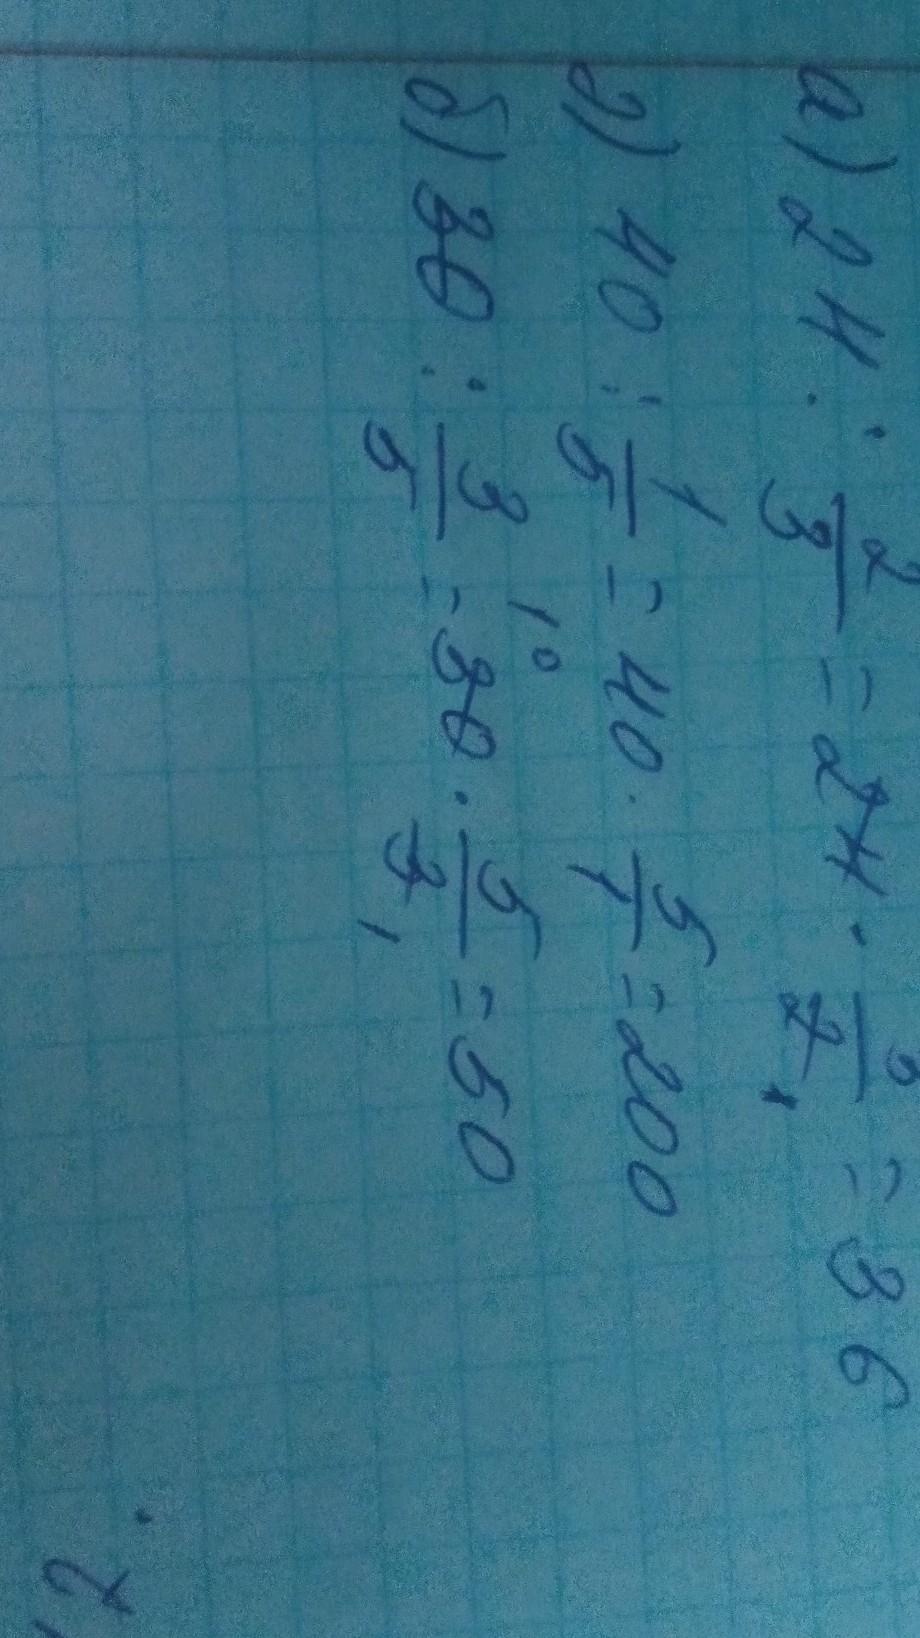 а) 24 : 2/3 = 24 · 3/2 = 36
г) 40 : 1/5 = 40 · 5/1 = 200
б) 30 : 3/5 = 30 · 5/3 = 50